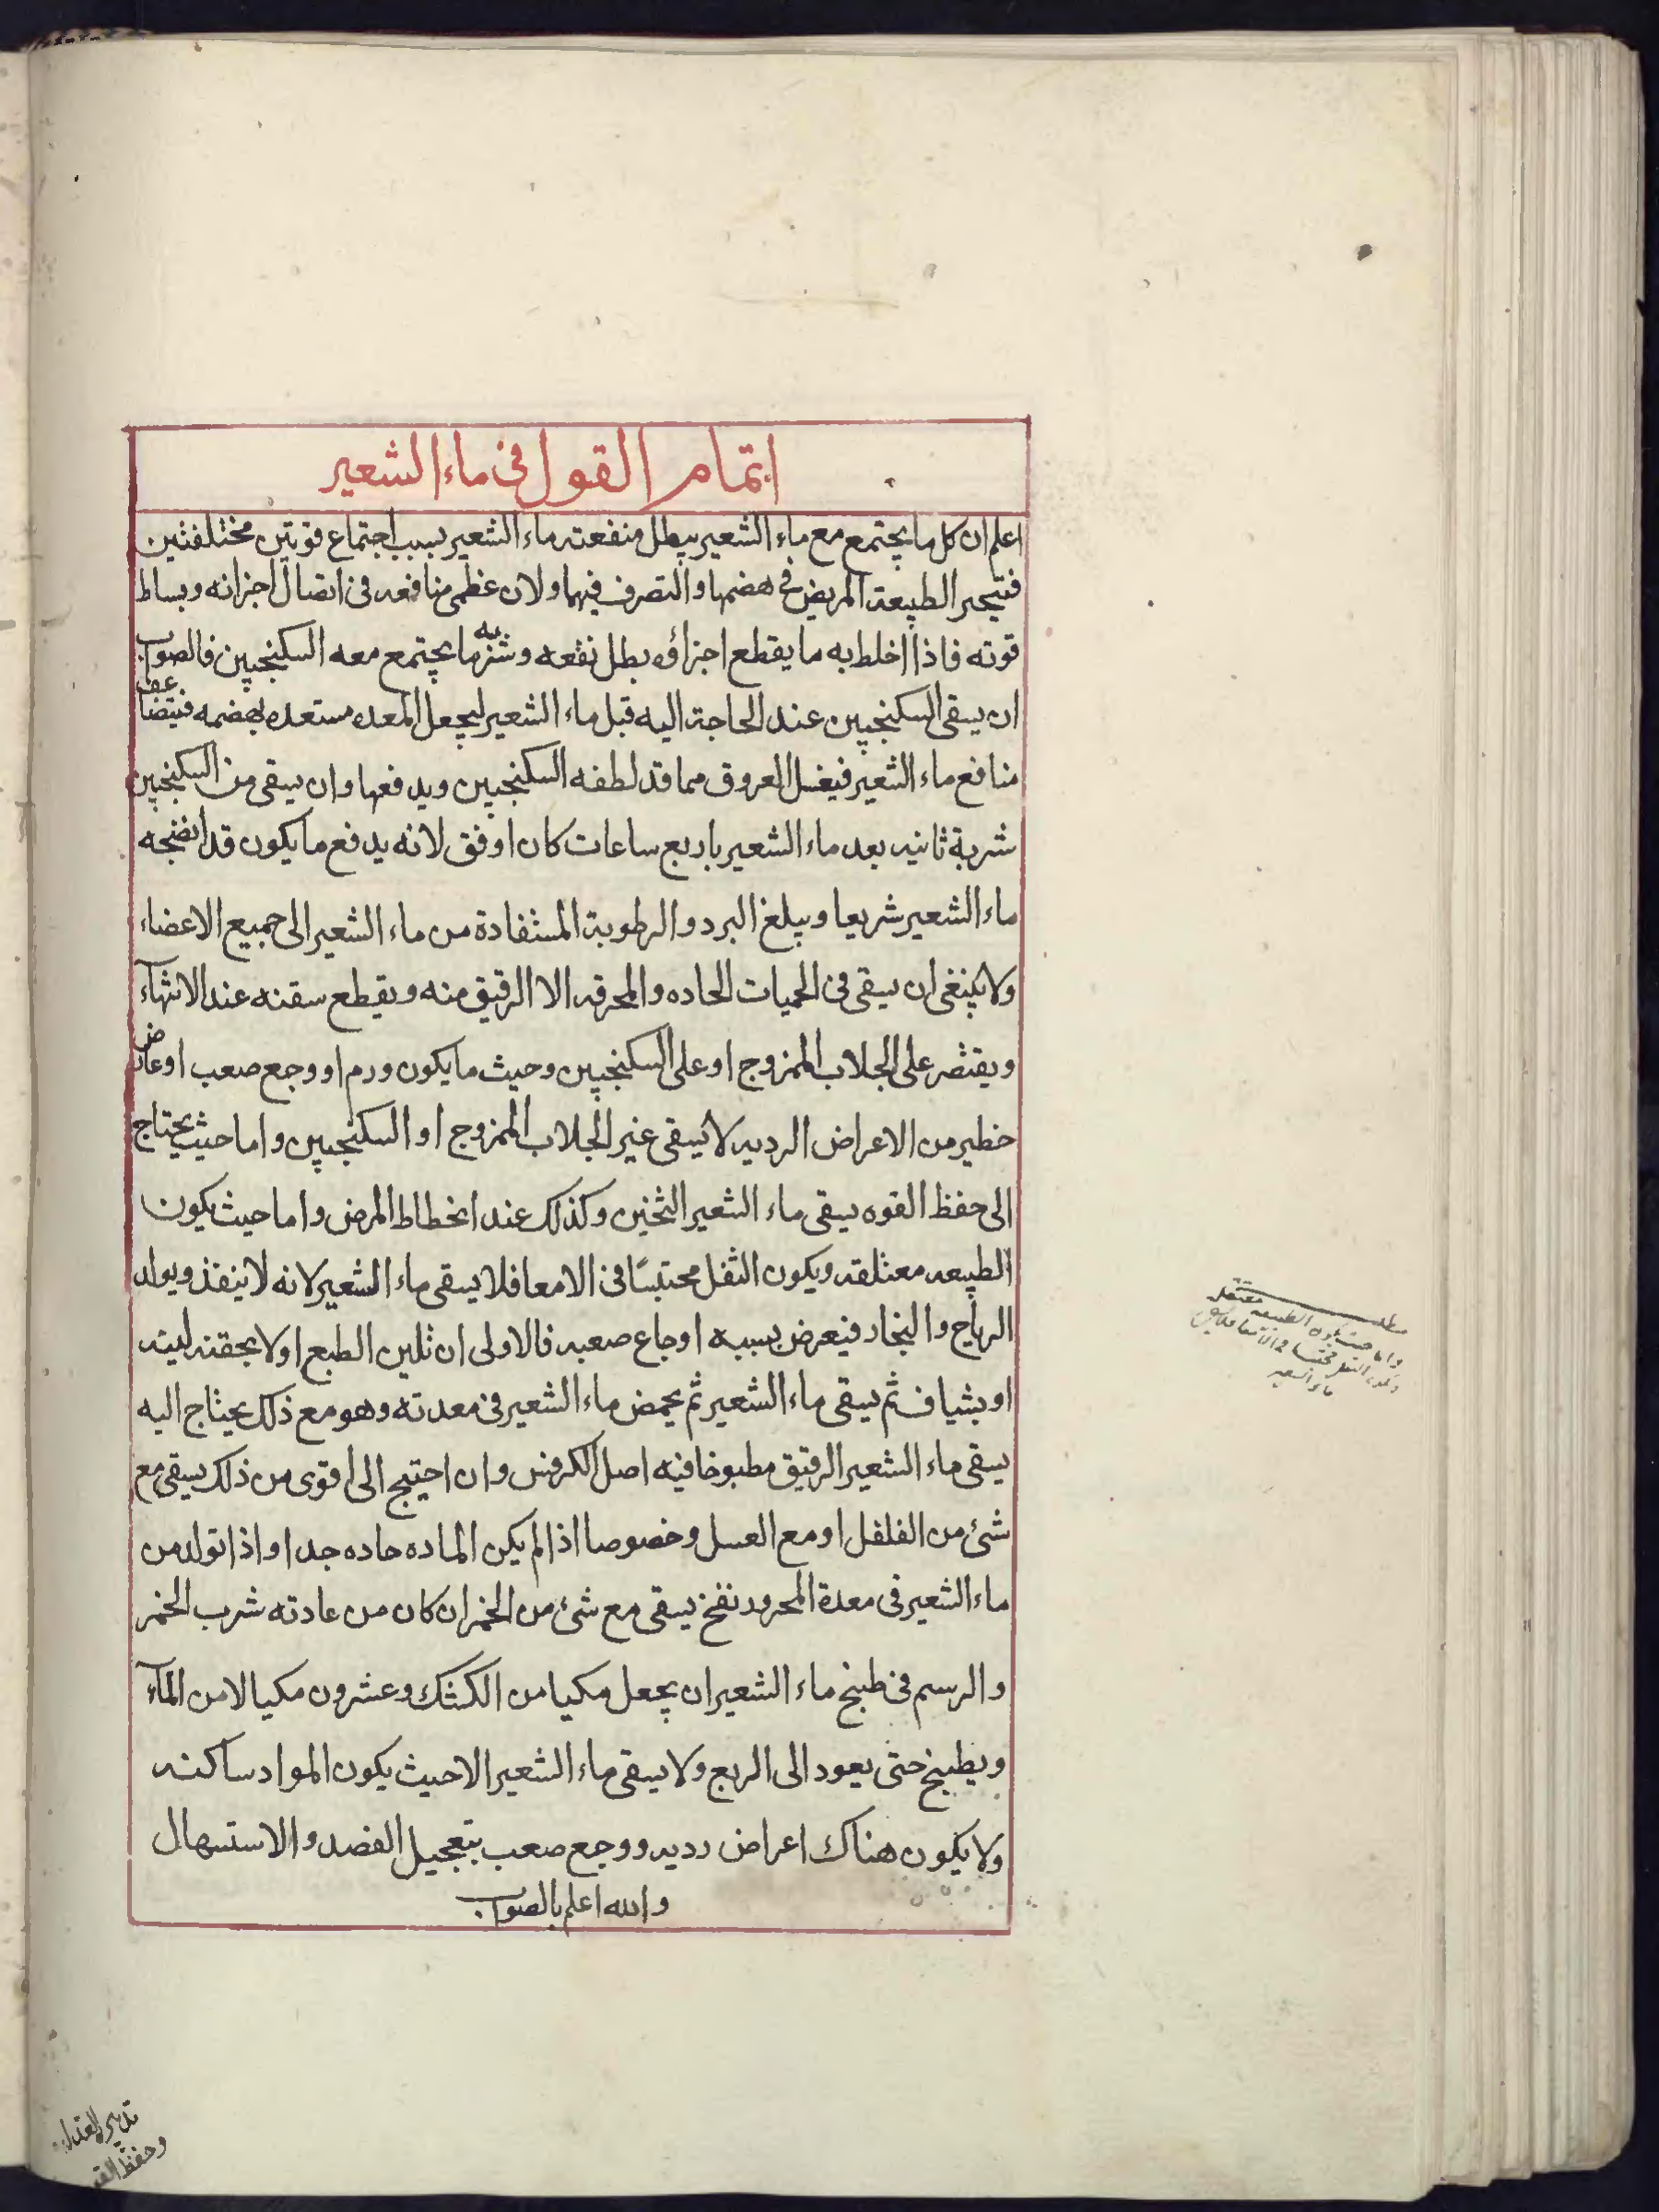 اتمام القول فى ماء الشعير
اعلم ان كل ما يجتمع مع ماء الشعير يبطل منفعته ماء الشعير بسبب اجتماع قوتين مختلفتين
فتيحير الطبيعة المريض فى هضمها والتصرف فيهما ولان عظمى منافعه فى اتصال اجزائه وبساط
قوته فاذا اخلط به ما يقطع اجزاؤه بطل نفعه وشر ما يجتمع معه السكنجبين فالصواب
ان يسقى السكنجبين عند الحاجة اليه قبل ماء الشعير ليجعل المعده مستعده لهضمه فيتضاعف
منافع ماء الشعير فيغسل العروق مما قد لطفه السكنجبين ويدفعها وان يسقى من السكنجبين
شربة ثانيه بعد ماء الشعير باربع ساعات كان اوفق لانه يدفع ما يكون قد انضجه
ماء الشعير شريعا ويبلغ البرد والرطوبة المستفادة من ماء الشعير الى جميع الاعضاء
ولا ينبغى ان يسقى فى الحميات الحاده والمحرقه الا الرقيق منه ويقطع سقنه عند الانتهآء
ويقتصر على الجلاب الممزوج او على السكنجبين وحيث ما يكون ورم او وجع صعب او عارض
خطير من الاعراض الرديه لا يسقى غير الجلاب الممزوج او السكنجبين واما حيث يحتاج
الى حفظ القوه يسقى ماء الشعير الثخين وكذلك عند انحطاط المرض واما حيث يكون
الطبيعه معتلقه ويكون الثفل محتبسًا فى الامعا فلا يسقى ماء الشعير لانه لا ينفذ ويولد
الرياح والبخار فيعرض بسببه اوجاع صعبه فالاولى ان تلين الطبع اولا بحقنه لينه
او بشياف ثم يسقى ماء الشعير ثم يحمض ماء الشعير فى معدته وهو مع ذلك يحتاج اليه
يسقى ماء الشعير الرقيق مطبوخا فيه اصل الكرفس وان احتيج الى اقوى من ذلك يسقى مع
شئ من الفلفل او مع العسل وخصوصا اذا لم يكن الماده حاده جدا واذا تولد من
ماء الشعير فى معدة المحرور نفخ يسقى مع شئ من الخمر ان كان من عادته شرب الخمر
والرسم فى طبخ ماء الشعير ان يجعل مكيا من الكشك وعشرون مكيالا من المآء
ويطبخ حتى يعود الى الربع ولا يسقى ماء الشعير الا حيث يكون المواد ساكنه
ولا يكون هناك اعراض رديه ووجع صعب بتعجيل الفصد والاستسهال
والله اعلم بالصواب
مطلب
واما حيث يكون الطبيعه معتقله
ويكون الثفل محتبسا فى الامعا فلا يسقى
ماء الشعير
وحفظ